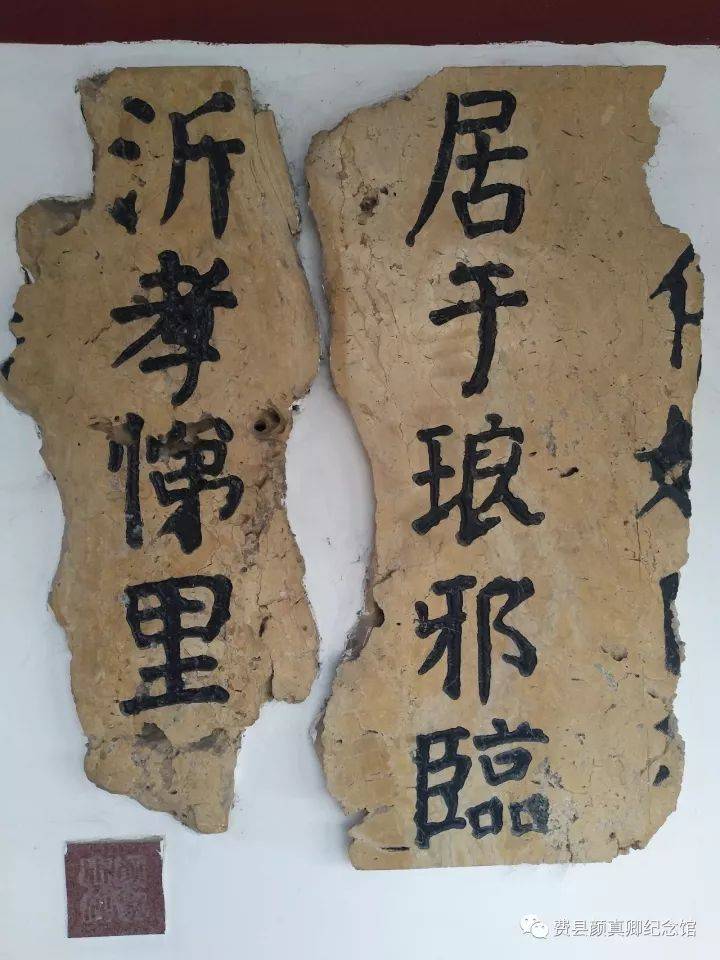 居于琅邪臨
沂孝悌里
费县颜真卿纪念馆